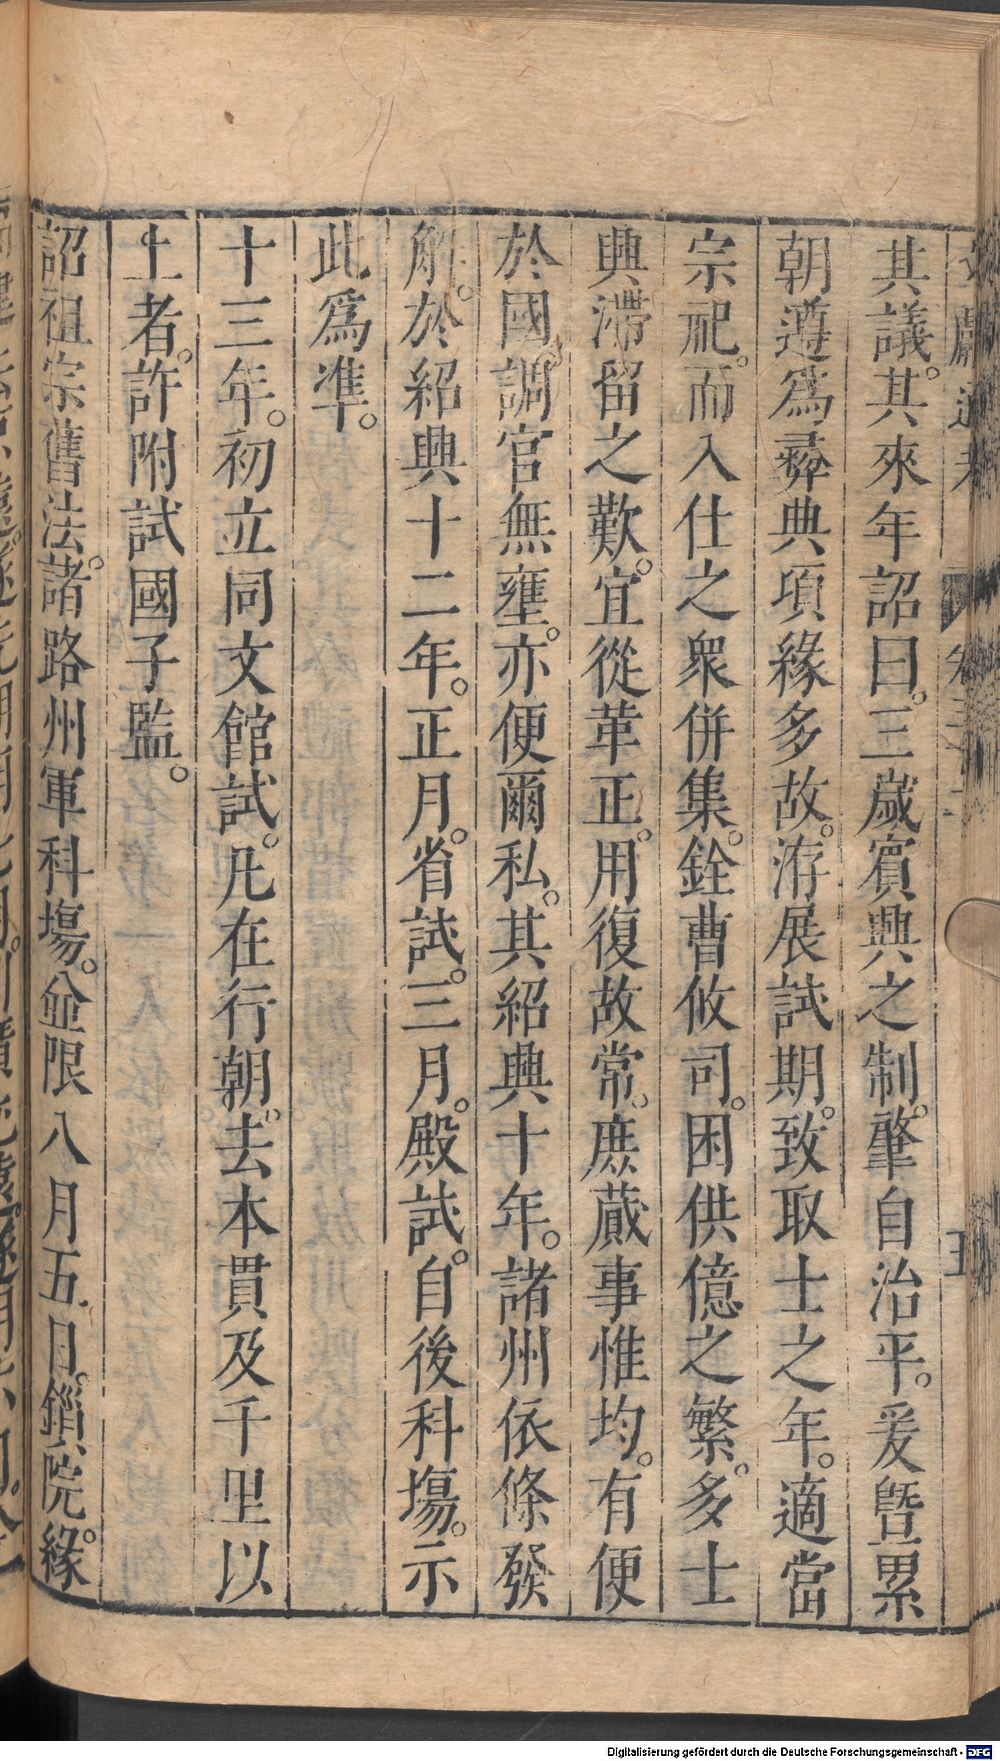 其議。其來年詔曰。三歲賓興之制。肇自治平。爰曁累
朝遵爲彞典項緣多故。洊展試期。致取士之年。適當
宗祀。而入仕之衆併集。銓曹攸司。困供億之繁。多士
興滯留之歎。宜從革正。用復故常。庶蕆事惟均。有便
於國。調官無壅。亦便爾私。其紹興十年。諸州依條發
解。於紹興十二年。正月。省試。三月。殿試。自後科塲。示
此爲準。
十三年。初立同文館試。凡在行朝。去本貫及千里以
上者。許附試國子監。
詔祖宗舊法。諸路州軍科塲。並限八月五日。鎻院。緣
Digitalisierung gefördert durch die Deutsche Forschungsgemeinschaft - DFG